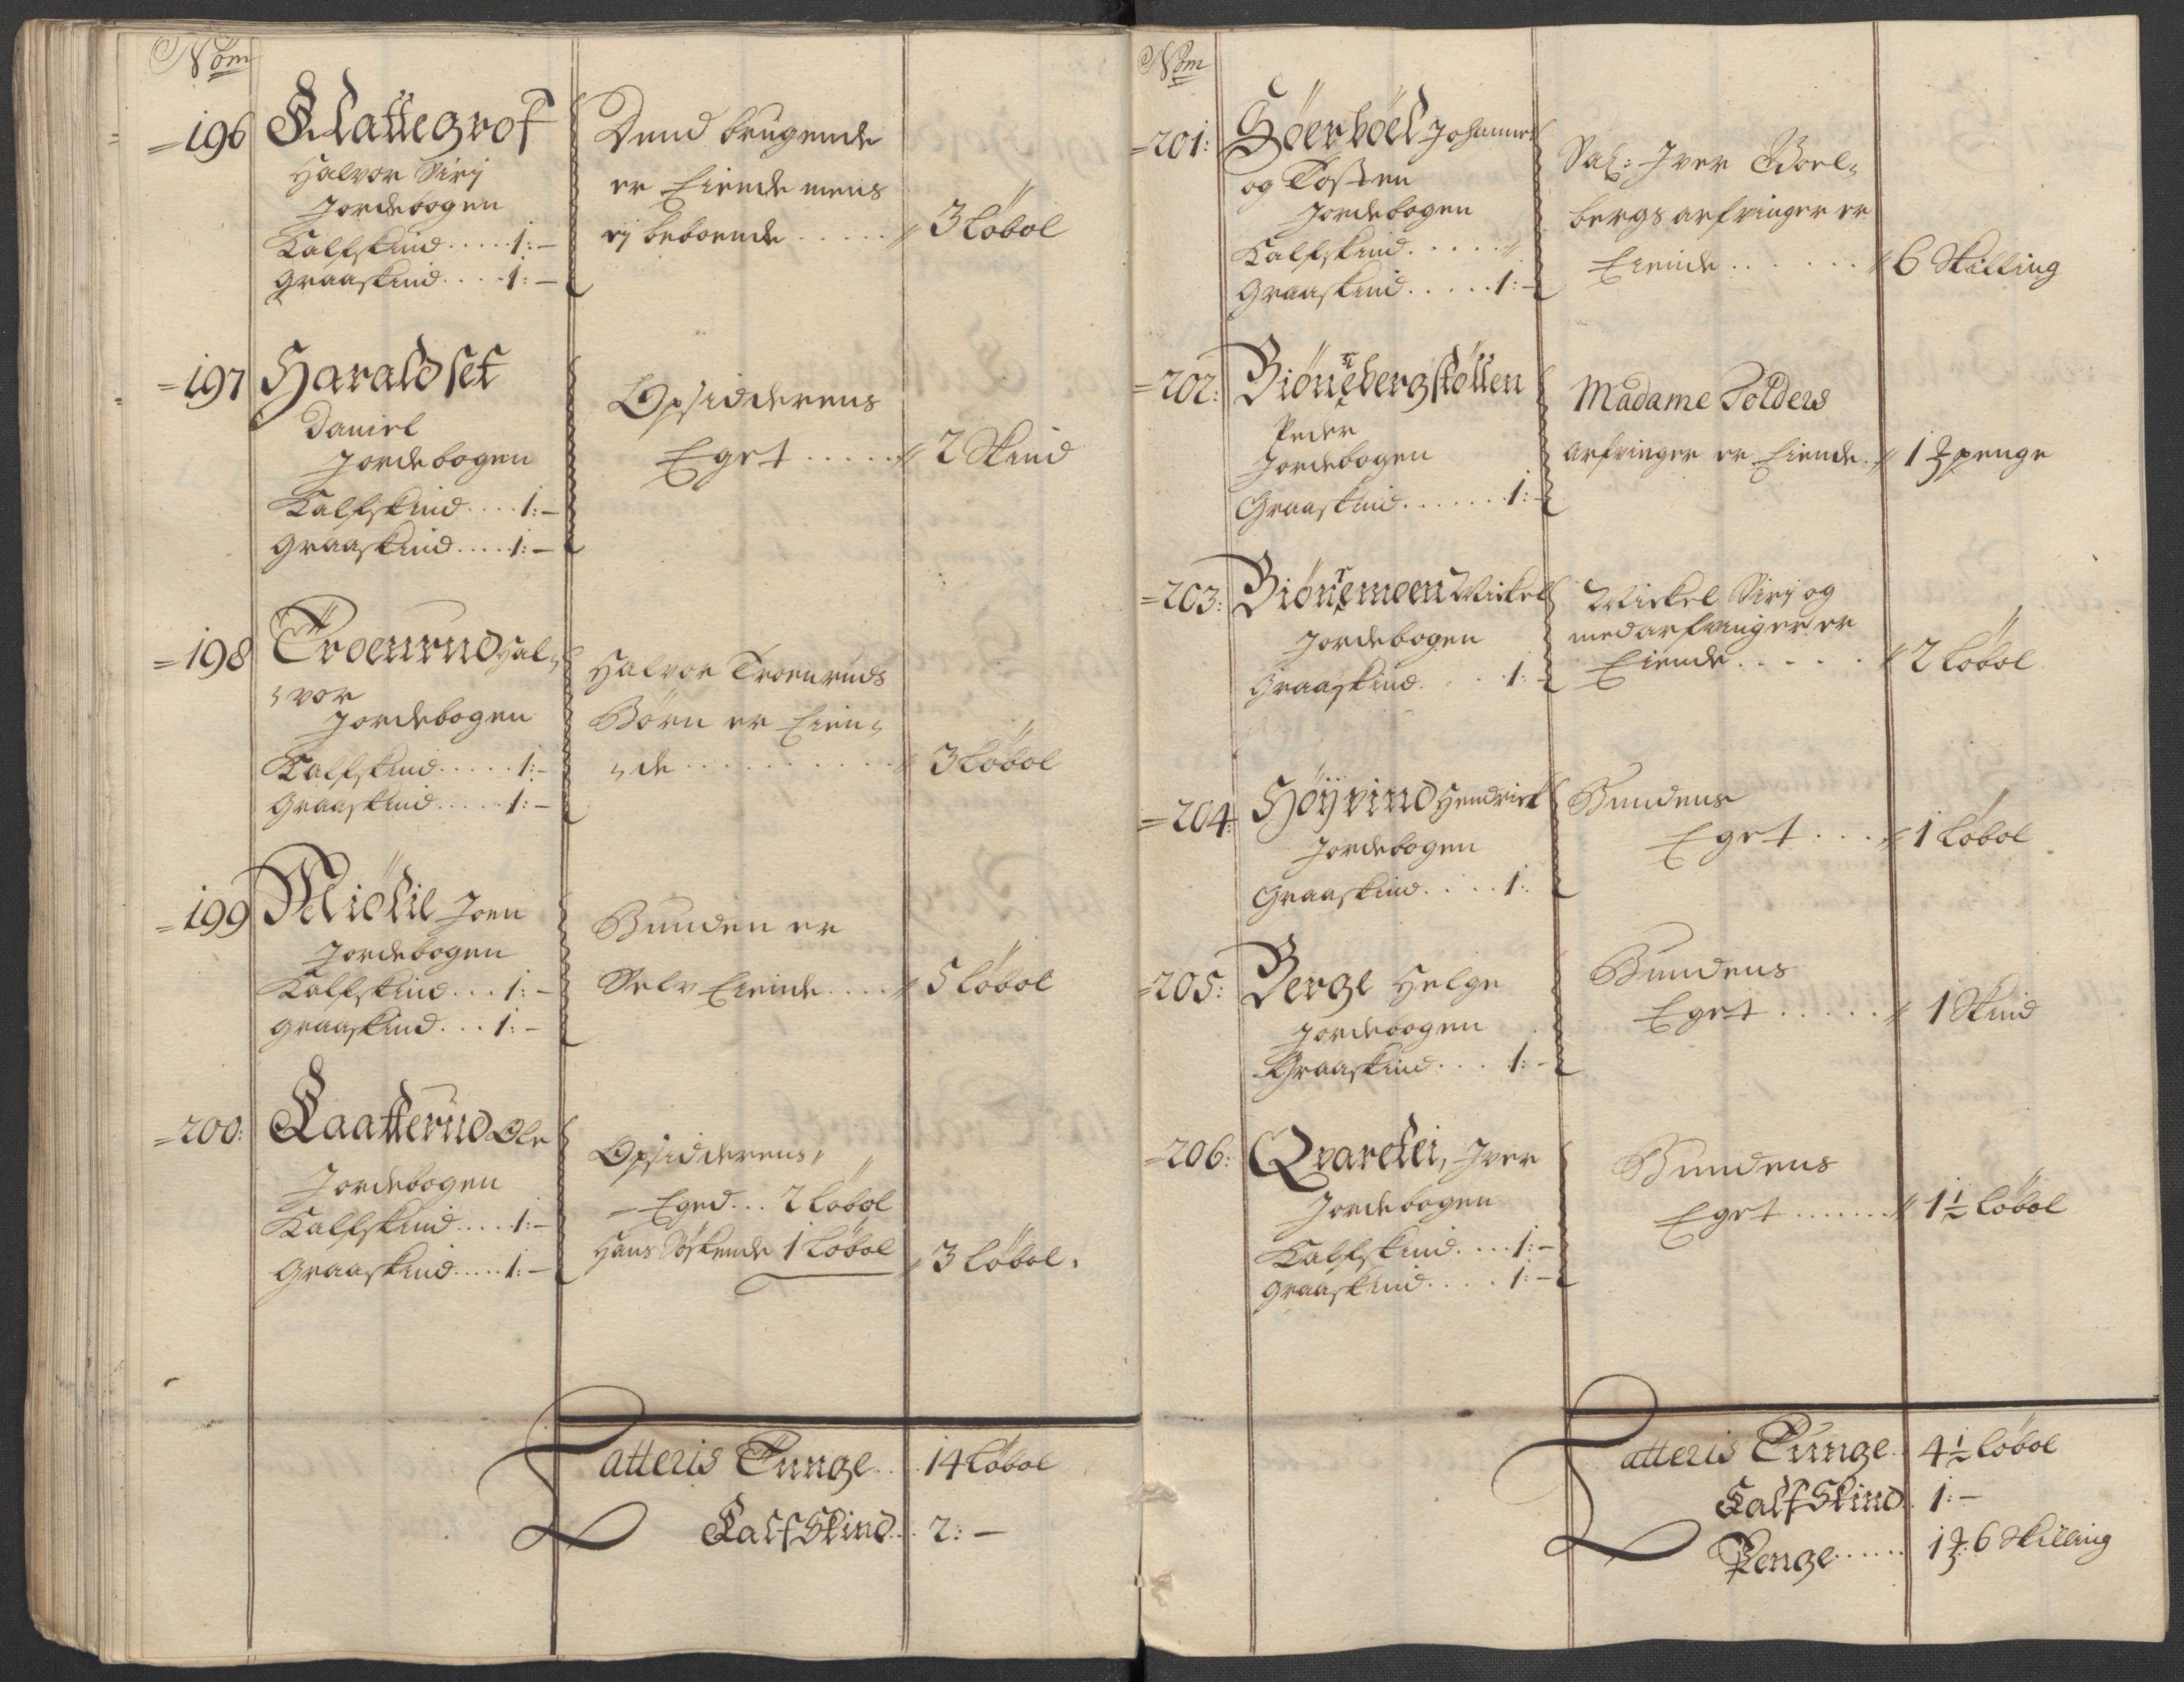 Nom
=196 Klattegrof
Halvor Siri
Jordebogen
Kalfskind.....1:—
Graaskind....1:—
Dend brugende
er Eiende mens
ej beboende..... „ 3 Løbol
=197 Haraldset
Daniel
Jordebogen
Kalfskind....1:—
Graaskind.....1:—
Opsidderens
Eget..... „ 2 Skind
=198 Troenrud Hal=
=vor
Jordebogen
Kalfskind.....1:—
Graaskind.....1:—
Halvor Troenruds
Børn er Eien=
=de.......... „ 3 Løbol
=199 Miölil Joen
Jordebogen
Kalfskind...1:—
Graaskind...1:—
Bunden er
Selv Eiende.... „ 5 Løbol
=200: Laatterud Ole
Jordebogen
Kalfskind....1:—
Graaskind.....1:—
Opsidderens
— Eged... 2 Løbol
Hans Söskende 1 Løbol „ 3 Løbol.
Latteris Tunge... 14 Løbol
Kalf Skind... 2:—
Nom
=201: Johannes
og Tosten
Jordebogen
Kalfskind..... „
Graaskind.....1:—
Sal: Iver
bergs arfvinger er
Eiende...... „ 6 Skilling
=202: Biönebergstöllen
Peder
Jordebogen
Graaskind......1:—
Madame Tolders
arfvinger er Eiende. „ 1 ₰ penge
=203: Biörnemoen Mickel
Jordebogen
Graaskind....1:—
Mickel Siri og
medarfvinger er
Eiende..... „ 2 Løbol
=204: Höÿvind Hendrick
Jordebogen
Graaskind....1:
Bundens
Eget... „ 1 Løbol
=205: Berge Helge
Jordebogen
Graaskind...1:—
Bundens
Eget..... „ 1 Skind
=206: Qvarelei, Iver
Jordebogen
Kalfskind....1:—
Graaskind....1:—
Bundens
Eget...... „ 1½ Løbol
Latteris Tunge.. 4½ Løbol
Kalf Skind. 1:—
Penge...... 1 ₰: 6 Skilling